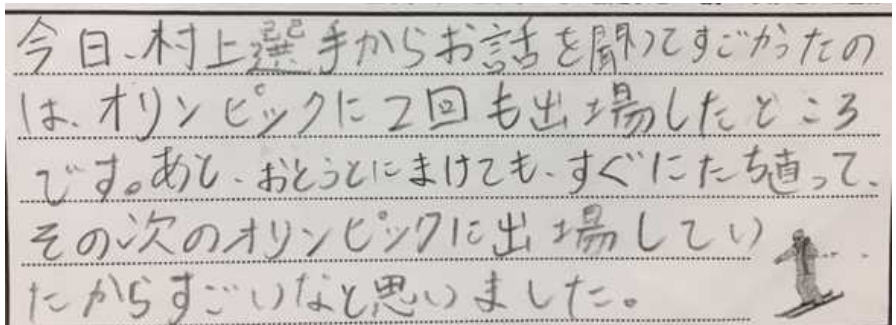 今日、村上選手からお話を聞いてすごかったの
は、オリンピックに2回も出場したところ
です。あと、おとうとにまけても、すぐにたち直って、
その次のオリンピックに出場してい
たからすごいなと思いました。